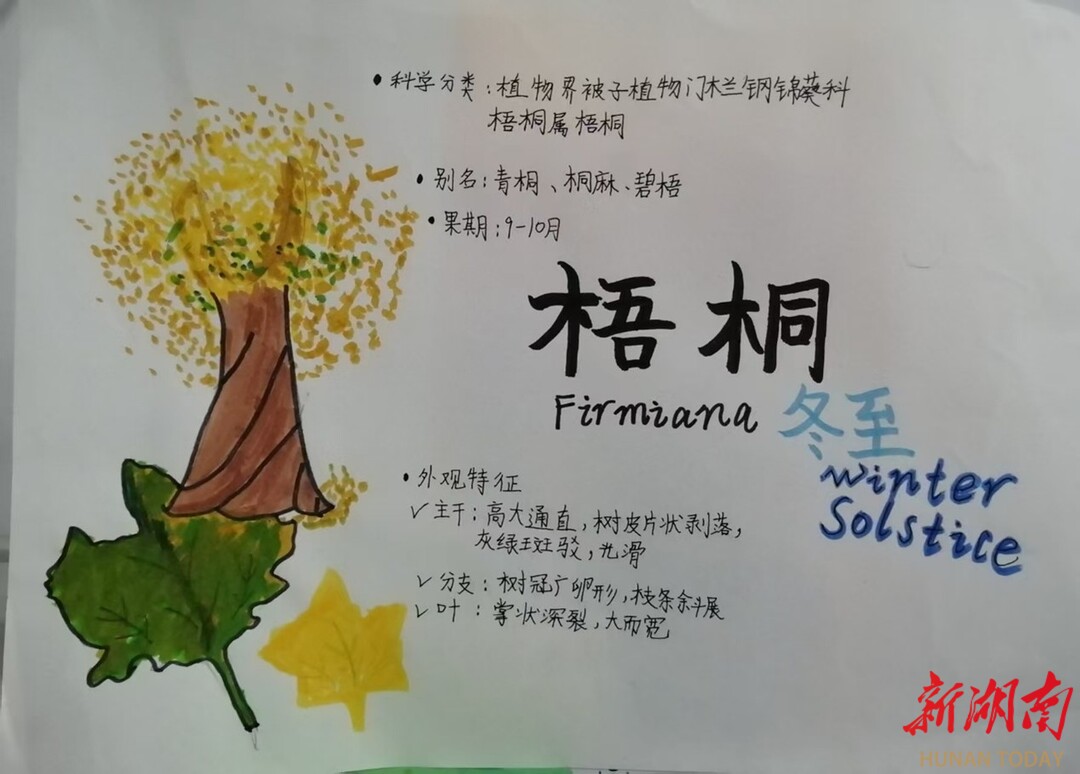 • 科学分类：植物界被子植物门木兰钢锦葵科
梧桐属梧桐
• 别名：青桐、桐麻、碧梧
• 果期：9-10月
梧桐
Firmiana
冬至
winter
Solstice
• 外观特征
✓ 主干：高大通直，树皮片状剥落，
灰绿斑驳，光滑
✓ 分支：树冠广卵形，枝条斜展
✓ 叶：掌状深裂，大而宽
新湖南
HUNAN TODAY